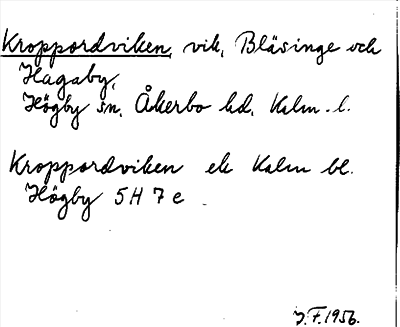 Kroppordviken, vik, Bläsinge och
Hagaby,
Högby sn, Åkerbo hd, Kalm. l.
Kroppordviken ek Kalm bl.
Högby 5H 7e
J.F. 1956.